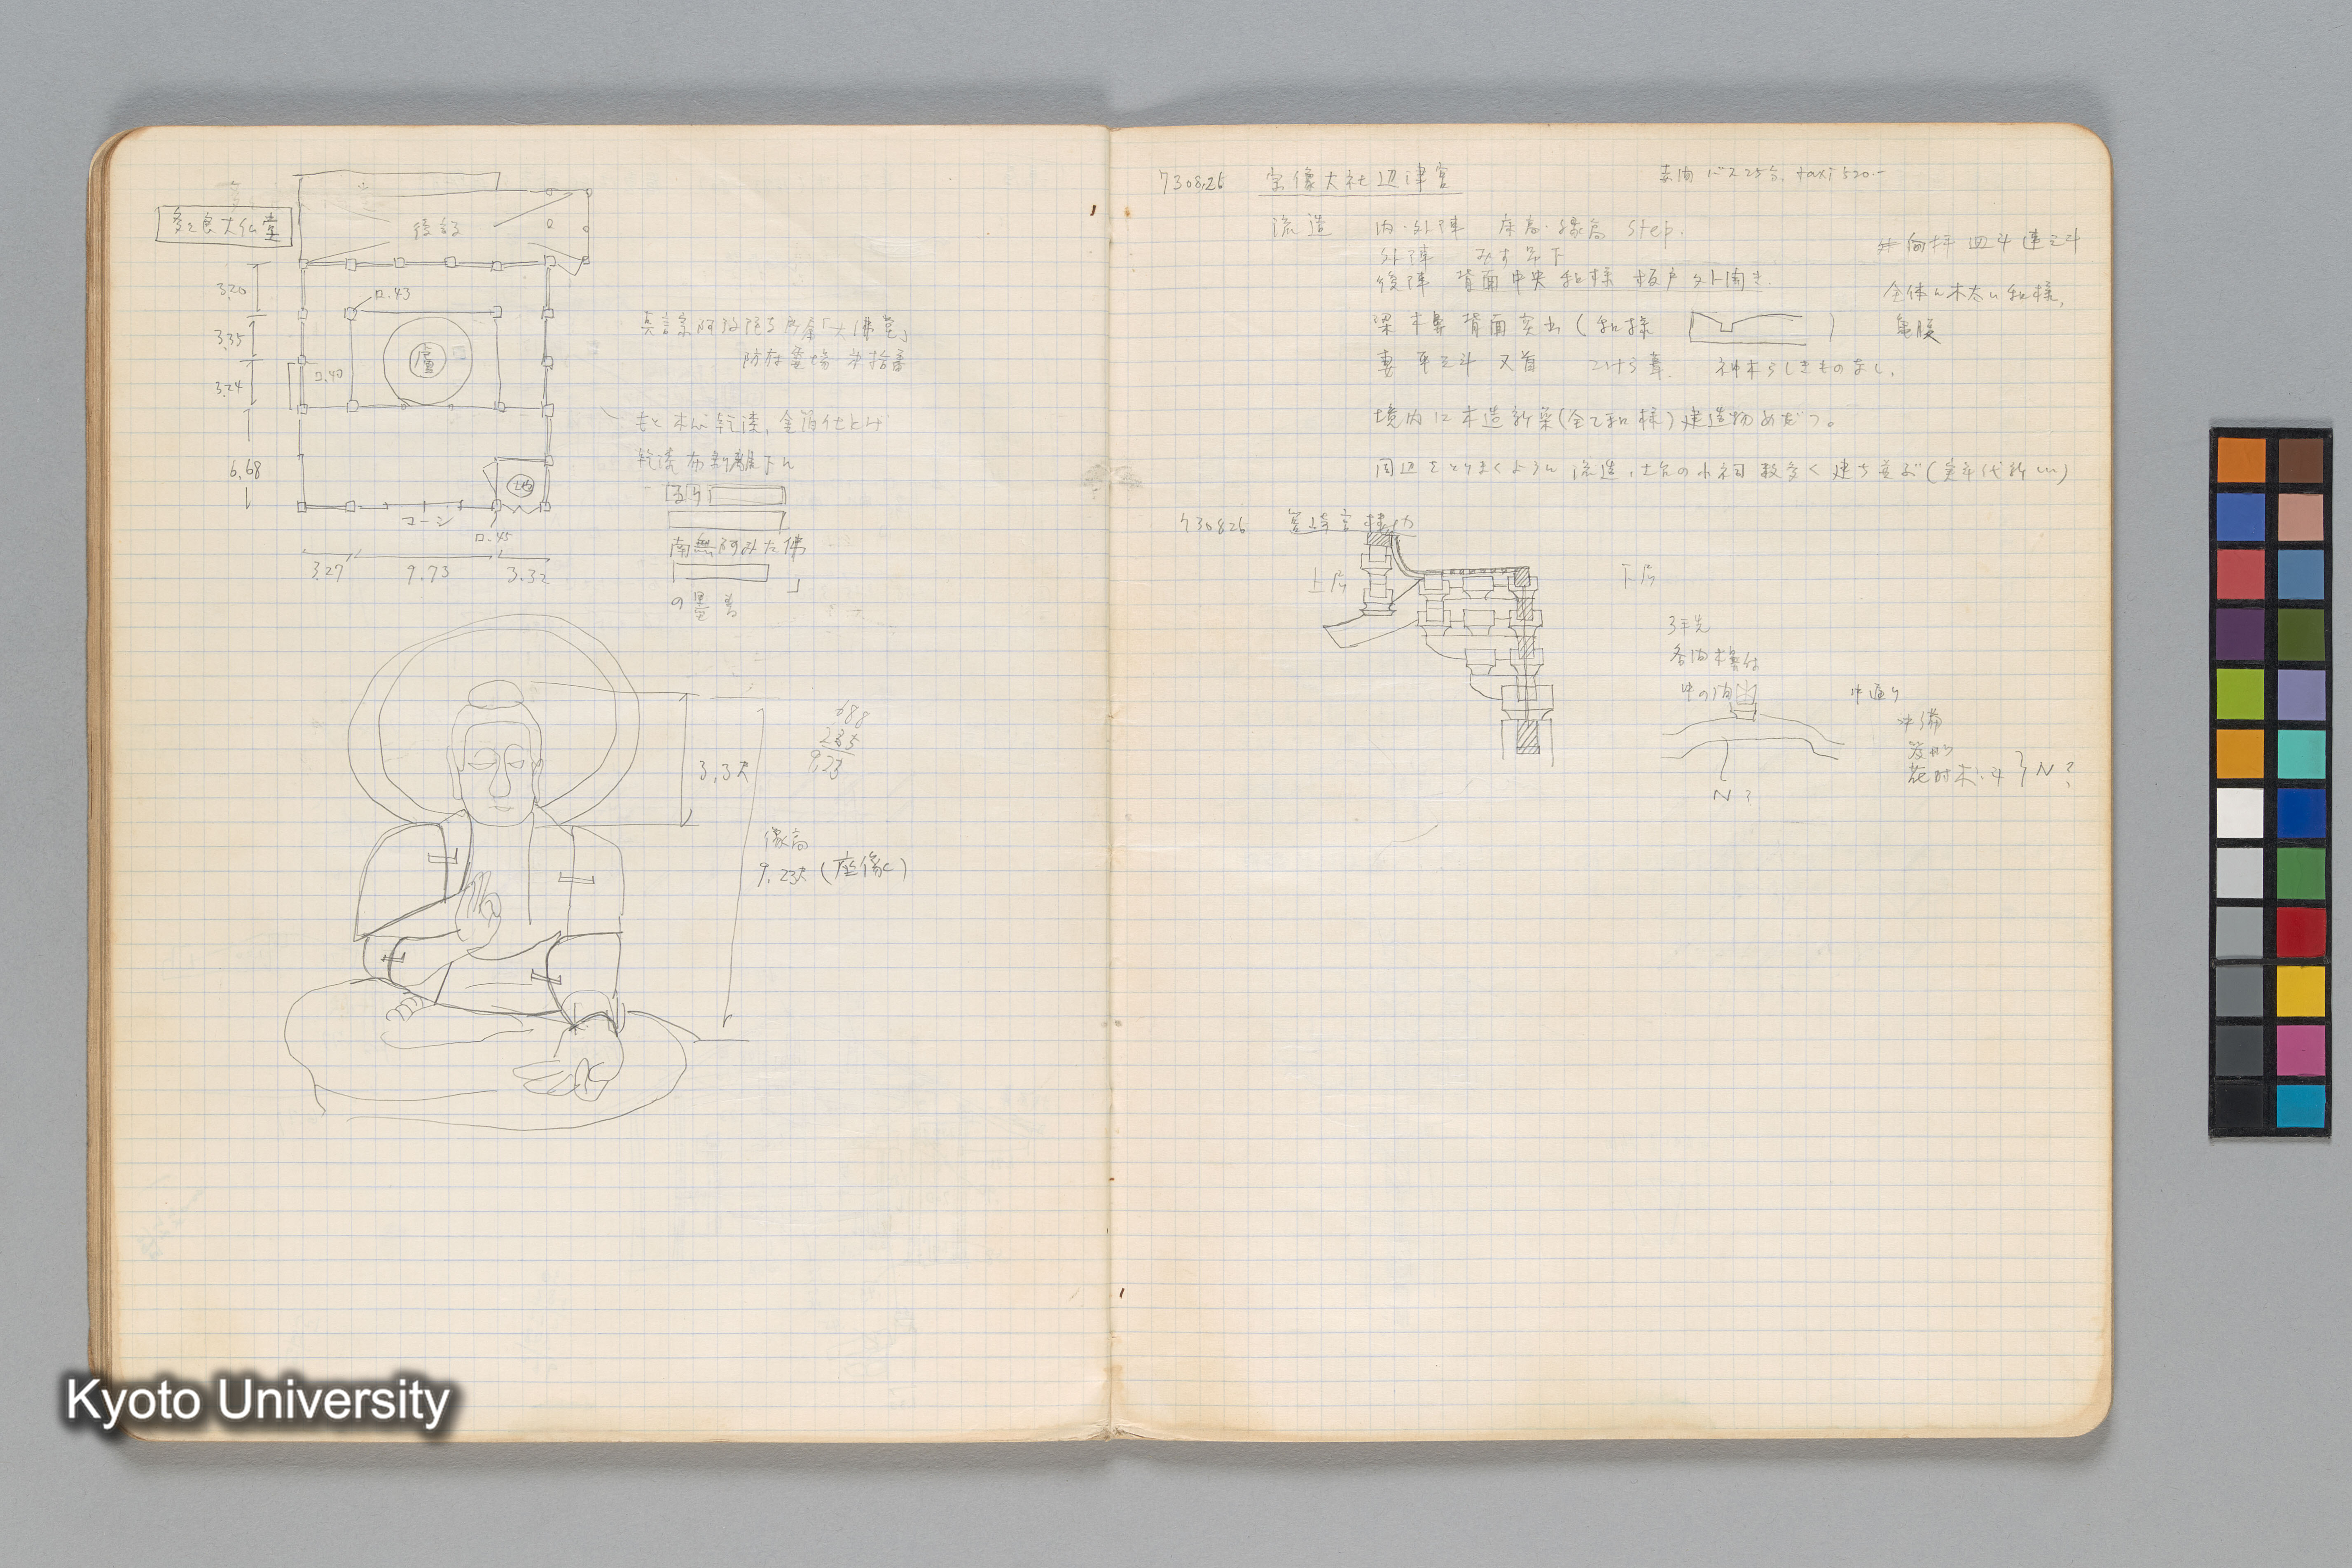 多々良大仏堂
後設
3.20
ロ.43
3.35
盧
ロ.40
3.24
6.68
地
コーシ
ロ.45
3.27 9.73 3.32
真言宗阿弥陀寺所属「大佛堂」
防府霊場 拾番
もと木心乾漆,金箔仕上げ
乾漆布剥離下に
南無阿みた佛
の墨書
688
235
9,23
3.3尺
像高
9.23尺(座像)
730826 宗像大社辺津宮
東国 バス25分. taxi 520.-
流造 内・外陣 床高・縁高 step.
外陣 みす吊下
後陣 背面中央 和様 板戸外開き.
梁木鼻背面突出(和様 )
妻 平三斗 叉首 こけら葺. 神木らしきものなし.
向拝 皿斗連三斗
全体に木太い和様,
亀腹
境内に木造新築(全て和様)建造物めだつ。
周辺をとりまくように流造,土台の小祠数多く建ち並ぶ(実年代新しい)
730826 筥崎宮楼門
上層
下層
3手先
各間木鼻付
中の間
N?
中通り
中備
蓑束
花肘木・斗 } N?
Kyoto University